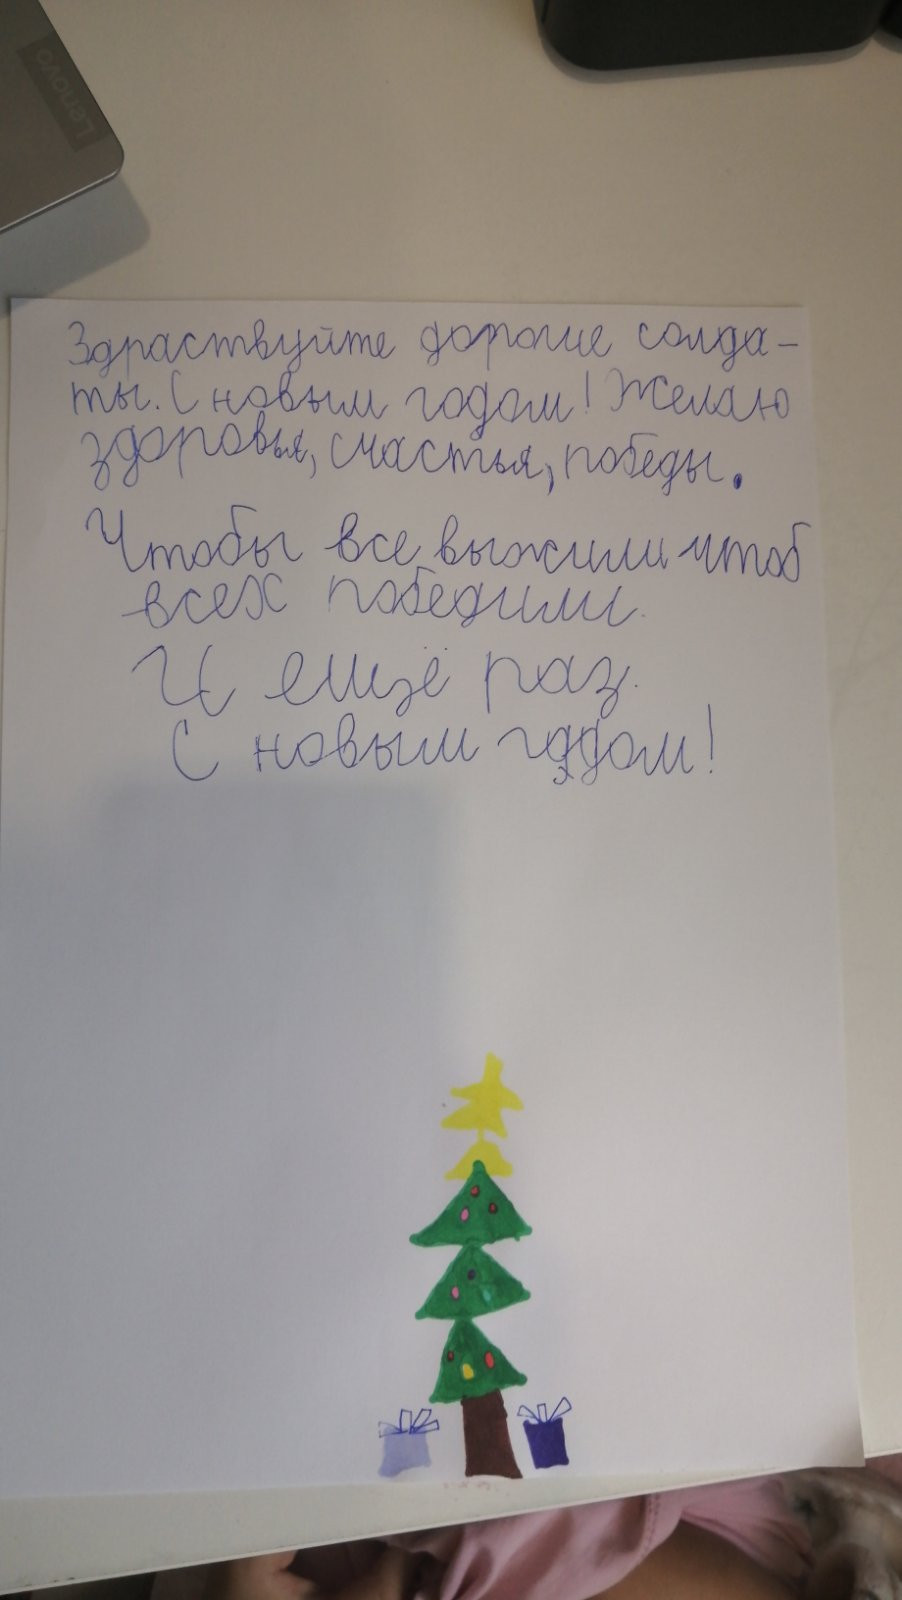 Lenovo
Здраствуйте дорогие солда-
ты. С новым годом! Желаю
здоровья, счастья, победы.
Чтобы все выжили чтоб
всех победили.
И ещё раз.
С новым годом!